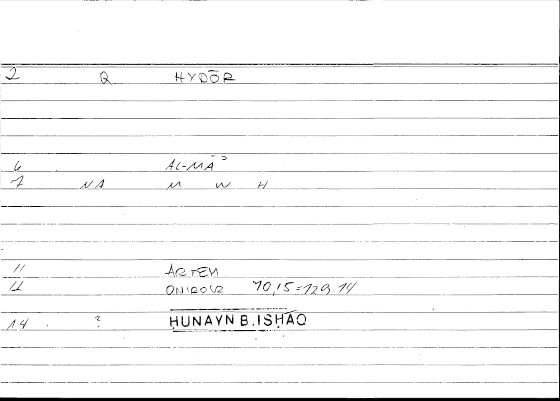 2 Q HYDŌR
6 AL-MĀʾ
7 NA M W H
11 ARTEM
12 ONIROCR 70,15=129,14
14 ? HUNAYN B. ISHĀQ